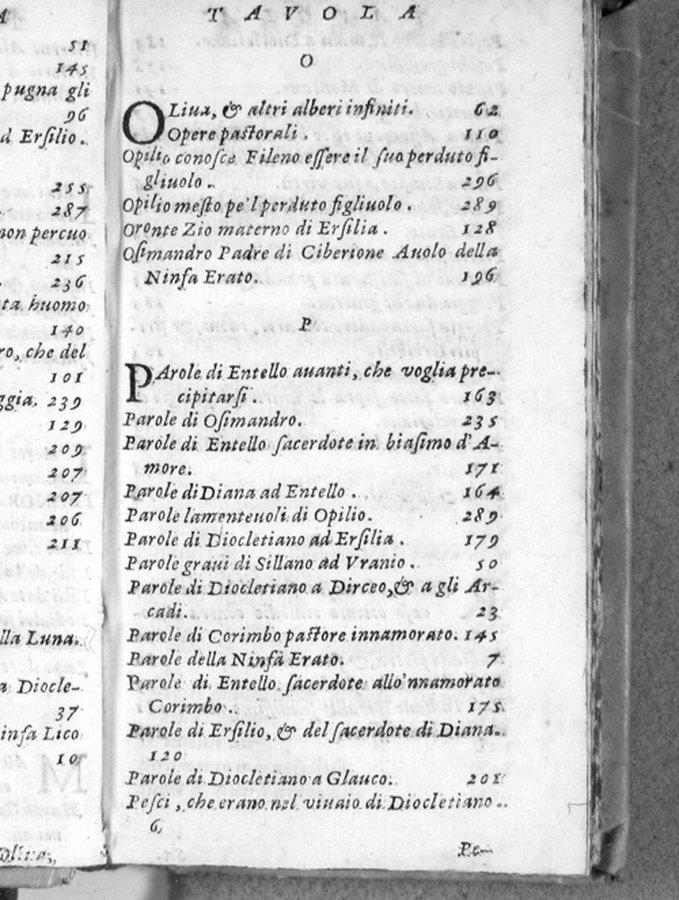 A
51
145
pugna gli
96
d Ersilio.
255
287
non percuo
215
236
ta huomo
140
ro, che del
101
ggia. 239
129
209
207
207
206
211
lla Luna.
a Diocle-
37
infa Lico
10
TAVOLA
O
OLiua, & altri alberi infiniti. 62
Opere pastorali. 110
Opilio conosce Fileno essere il suo perduto fi-
gliuolo. 296
Opilio mesto pe'l perduto figliuolo. 289
Oronte Zio materno di Ersilia. 128
Osimandro Padre di Ciberione Auolo della
Ninfa Erato. 196
P
PArole di Entello auanti, che voglia pre-
cipitarsi 163
Parole di Osimandro. 235
Parole di Entello sacerdote in biasimo d'A-
more. 171
Parole di Diana ad Entello. 164
Parole lamenteuoli di Opilio. 289
Parole di Diocletiano ad Ersilia. 179
Parole graui di Sillano ad Vranio. 50
Parole di Diocletiano a Dirceo, & a gli Ar-
cadi. 23
Parole di Corimbo pastore innamorato. 145
Parole della Ninfa Erato. 7
Parole di Entello sacerdote allo'nnamorato
Corimbo. 175
Parole di Ersilio, & del sacerdote di Diana.
120
Parole di Diocletiano a Glauco. 201
Pesci, che erano nel viuaio di Diocletiano.
6
Pe-